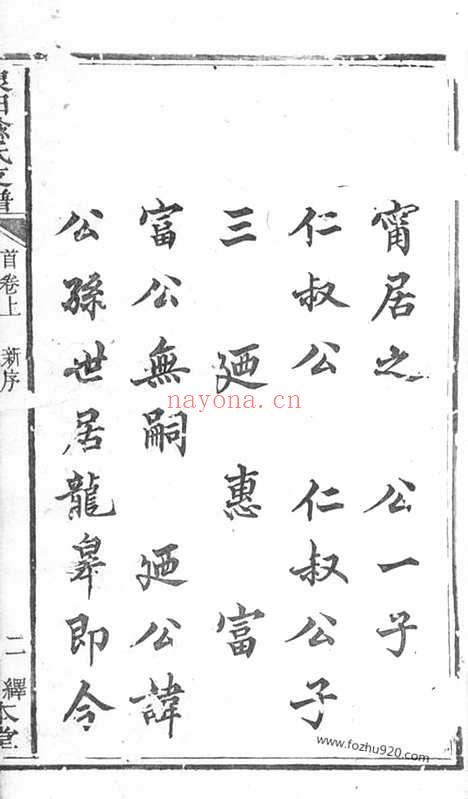 甯居之　公一子
仁叔公　仁叔公子
三　廼　惠　富
富公無嗣　廼公諱
公孫世居龍臯即今
氏支譜
首卷上　新序
二
繹本堂
nayona.cn
www.fozhu920.com